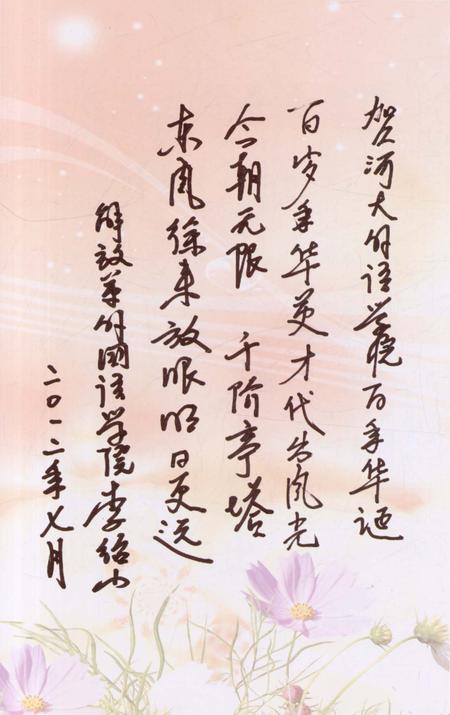 贺河大外语学院百年华诞
百岁年华英才代出风光
今朝无限 千阶亭塔
东风徐来放眼明日更远
解放军外国语学院李绍山
二〇一二年七月